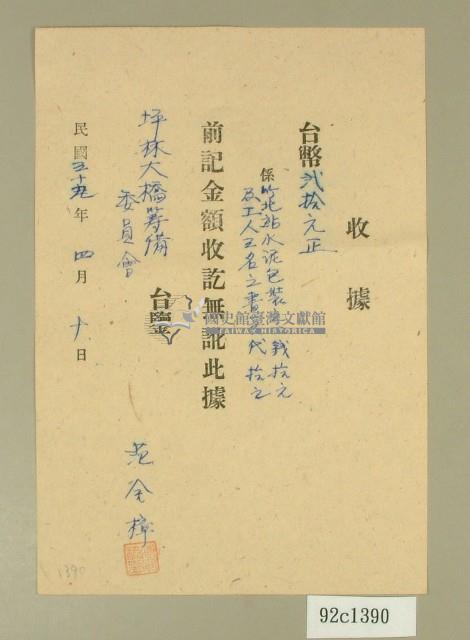 收據
台幣弍拾元正
係竹北站水泥包裝 錢拾元
及工人五名之 代拾元
前記金額收訖無訛此據
坪林大橋籌備
委員會
台鑒
民國五十五年 四月 十日
范 樟
1390
國史館臺灣文獻館
TAIWAN HISTORICA
92c1390